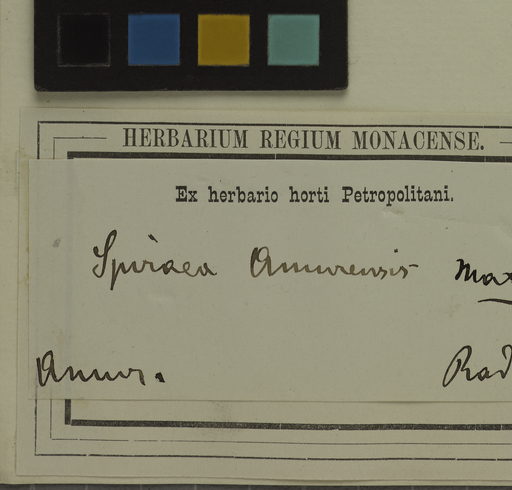 HERBARIUM REGIUM MONACENSE.
Ex herbario horti Petropolitani.
Spiraea Amurensis Max
Amur. Rad